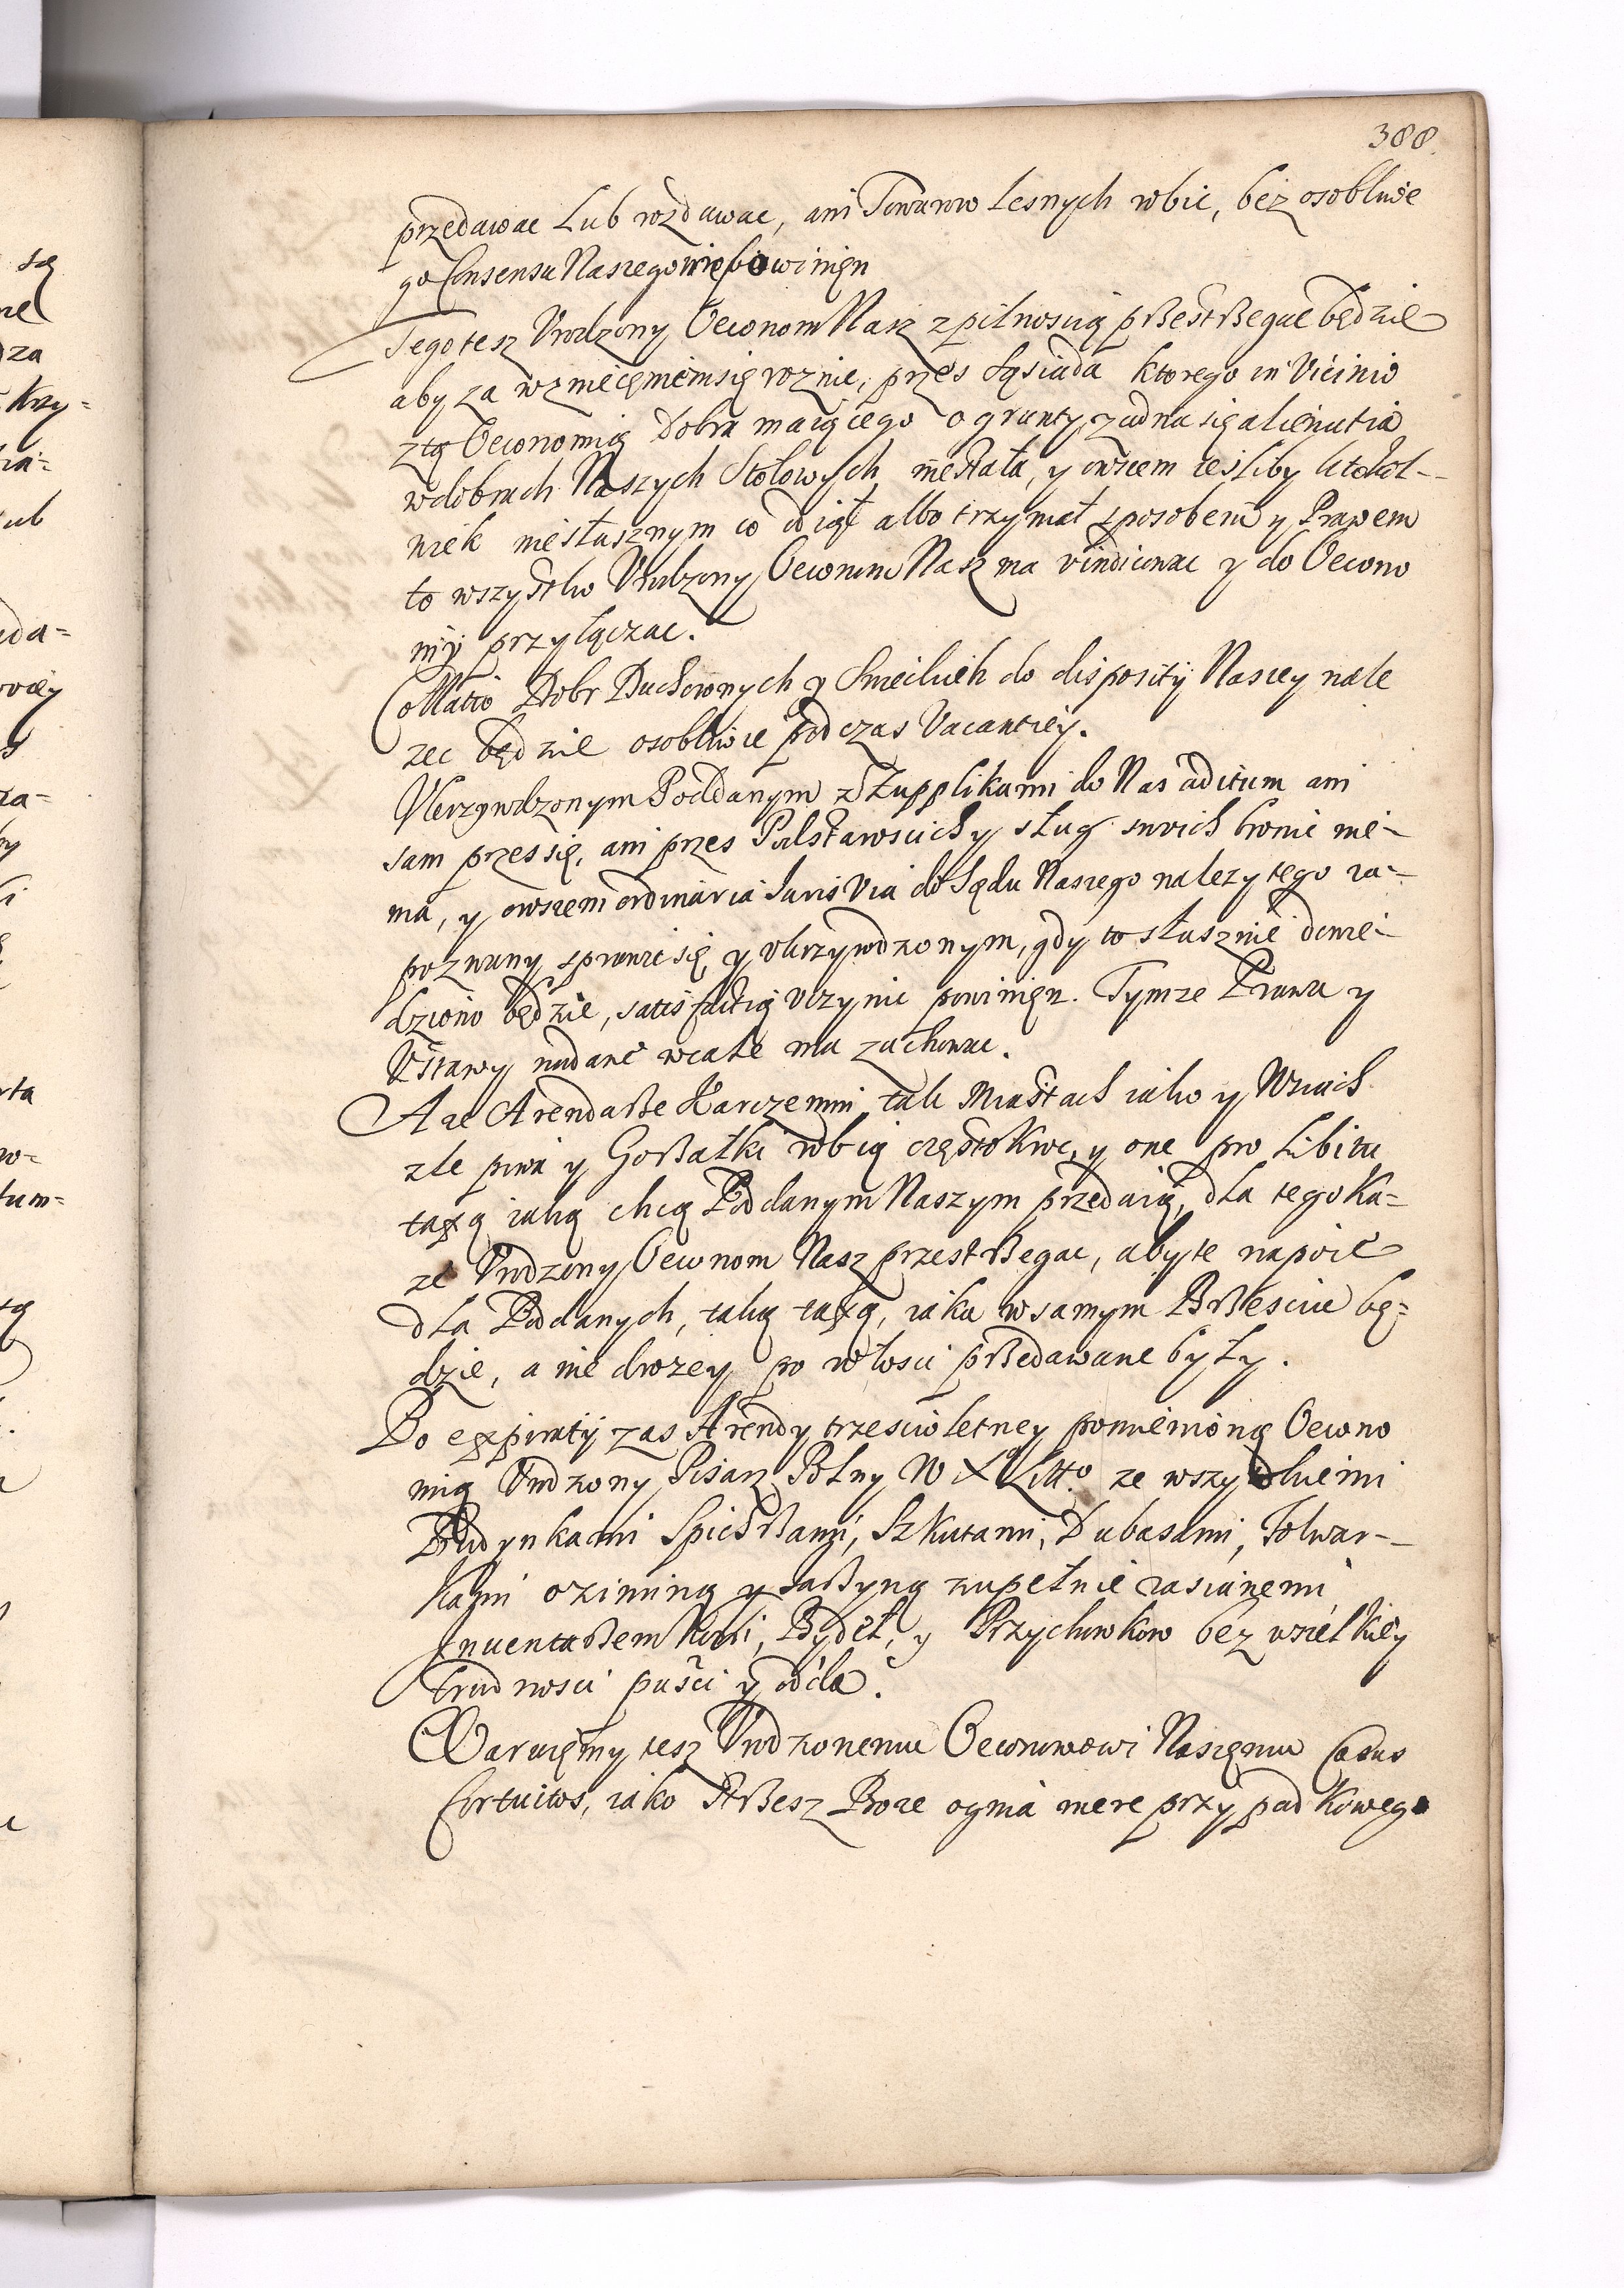 388
przedawac Lub rozdawac, ani Towarow Lesnych robic, bez osobliwe
go Consensu Naszego nie powinięn
Tego tesz Vrodzony Oeconom Nasz z pilnoscią przestrzegac będzie
aby za wznięcęniem się roznic, przes Sąsiada ktorego in Vicinio
z tą Oeconomią Dobra maiącego o grunty, zadna się alienatia
w dobrach Naszych Stołowych, niestała, y owszem iesliby ktokol-
wiek niesłusznym co odiął albo trzymał sposobem y Prawem
to wszystko Vrodzony Oeconom Nasz ma vindicowac y do Oecono
mÿ przyłączac.
Collatio Dobr Duchownych y Swieckich do disposityi Naszey nale
zec będzie osobliwie podczas Vacantiey.
Vkrzywdzonym Poddanym z Supplikami do Nas aditum ani
sam przes się, ani przes Podstaroscich y sług swoich bronic nie-
ma, y owszem ordinaria Iuris Via do Sądu Naszego nalezytego za-
pozwany sprawic się, y vkrzywdzonym, gdy to słusznie dowie-
dziono będzie, satisfactią vczynic powinięn. Tymze Prawa y
Vstawy nadane wcale ma zachowac.
A ze Arendarze Karczemni, tak Miastach iako y Wsiach
zle piwa y Gorzałki robią częstokroc, y one pro Libitu
taxą iaką chcą Poddanym Naszym przedaią, dla tego Ka-
ze Vrodzony Oeconom Nasz przestrzegac, aby te napoie
dla Poddanych, taką taxą, iaka w samym Brzesciu bę-
dzie, a nie drozey po włosci przedawane były.
Po expiratÿ zas Arendy trzescioletney pomienioną Oecono
mią Vrodzony Pisarz Polny W X Litto ze wszystkiemi
Budynkami Spichrzami, Szkutami, Dubasami, Folwar-
kami oziminą y Jarzyną zupełnie zasianemi,
Inuentarzem Koni, Bydeł, y Przychowkow bez wszelkiey
trudnosci pusci y odda.
Waruięmy tesz Vrodzonemu Oeconomowi Naszęmu Casus
fortuitos, iako Strzesz Boze ognia mere przypadkowego